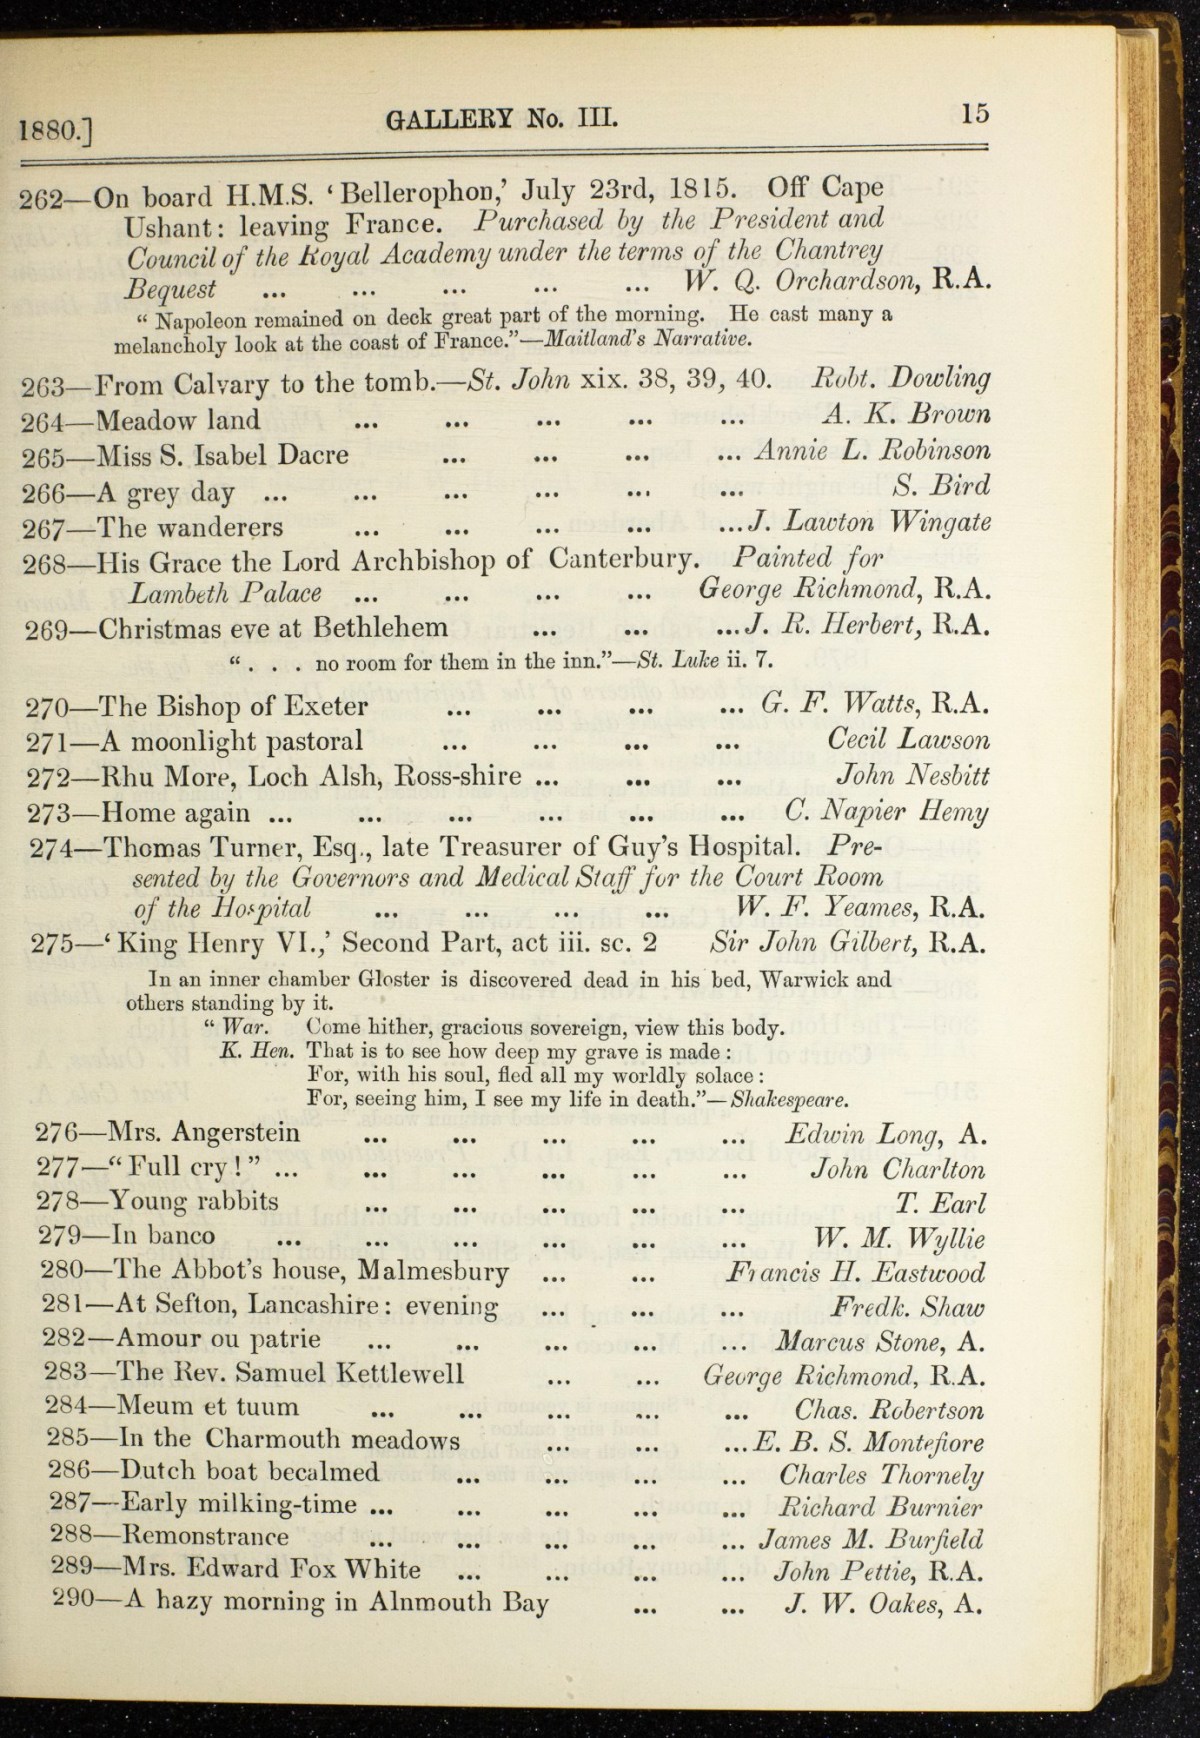 1880.] GALLERY No. III. 15
262—On board H.M.S. ‘Bellerophon,’ July 23rd, 1815. Off Cape
Ushant: leaving France. Purchased by the President and
Council of the Royal Academy under the terms of the Chantrey
Bequest ... ... ... ... ... W. Q. Orchardson, R.A.
“ Napoleon remained on deck great part of the morning. He cast many a
melancholy look at the coast of France.”—Maitland's Narrative.
263—From Calvary to the tomb.—St. John xix. 38, 39, 40. Robt. Dowling
264—Meadow land ... ... ... ... ... A. K. Brown
265—Miss S. Isabel Dacre ... ... ... ... Annie L. Robinson
266—A grey day ... ... ... ... ... ... S. Bird
267—The wanderers ... ... ... ... ...J. Lawton Wingate
268—His Grace the Lord Archbishop of Canterbury. Painted for
Lambeth Palace ... ... ... ... George Richmond, R.A.
269—Christmas eve at Bethlehem ... ... ...J. R. Herbert, R.A.
“ . . . no room for them in the inn.”—St. Luke ii. 7.
270—The Bishop of Exeter ... ... ... ... G. F. Watts, R.A.
271—A moonlight pastoral ... ... ... ... Cecil Lawson
272—Rhu More, Loch Alsh, Ross-shire ... ... ... John Nesbitt
273—Home again ... ... ... ... ... ... C. Napier Hemy
274—Thomas Turner, Esq., late Treasurer of Guy's Hospital. Pre-
sented by the Governors and Medical Staff for the Court Room
of the Hospital ... ... ... ... W. F. Yeames, R.A.
275—‘King Henry VI.,’ Second Part, act iii. sc. 2 Sir John Gilbert, R.A.
In an inner chamber Gloster is discovered dead in his bed, Warwick and
others standing by it.
“ War. Come hither, gracious sovereign, view this body.
K. Hen. That is to see how deep my grave is made :
For, with his soul, fled all my worldly solace :
For, seeing him, I see my life in death.”—Shakespeare.
276—Mrs. Angerstein ... ... ... ... ... Edwin Long, A.
277—“Full cry!” ... ... ... ... ... ... John Charlton
278—Young rabbits ... ... ... ... ... T. Earl
279—In banco ... ... ... ... ... ... W. M. Wyllie
280—The Abbot's house, Malmesbury ... ... Francis H. Eastwood
281—At Sefton, Lancashire: evening ... ... ... Fredk. Shaw
282—Amour ou patrie ... ... ... ... ... Marcus Stone, A.
283—The Rev. Samuel Kettlewell ... ... George Richmond, R.A.
284—Meum et tuum ... ... ... ... ... Chas. Robertson
285—In the Charmouth meadows ... ... ...E. B. S. Montefiore
286—Dutch boat becalmed ... ... ... ... Charles Thornely
287—Early milking-time ... ... ... ... ... Richard Burnier
288—Remonstrance ... ... ... ... ... James M. Burfield
289—Mrs. Edward Fox White ... ... ... ... John Pettie, R.A.
290—A hazy morning in Alnmouth Bay ... ... J. W. Oakes, A.